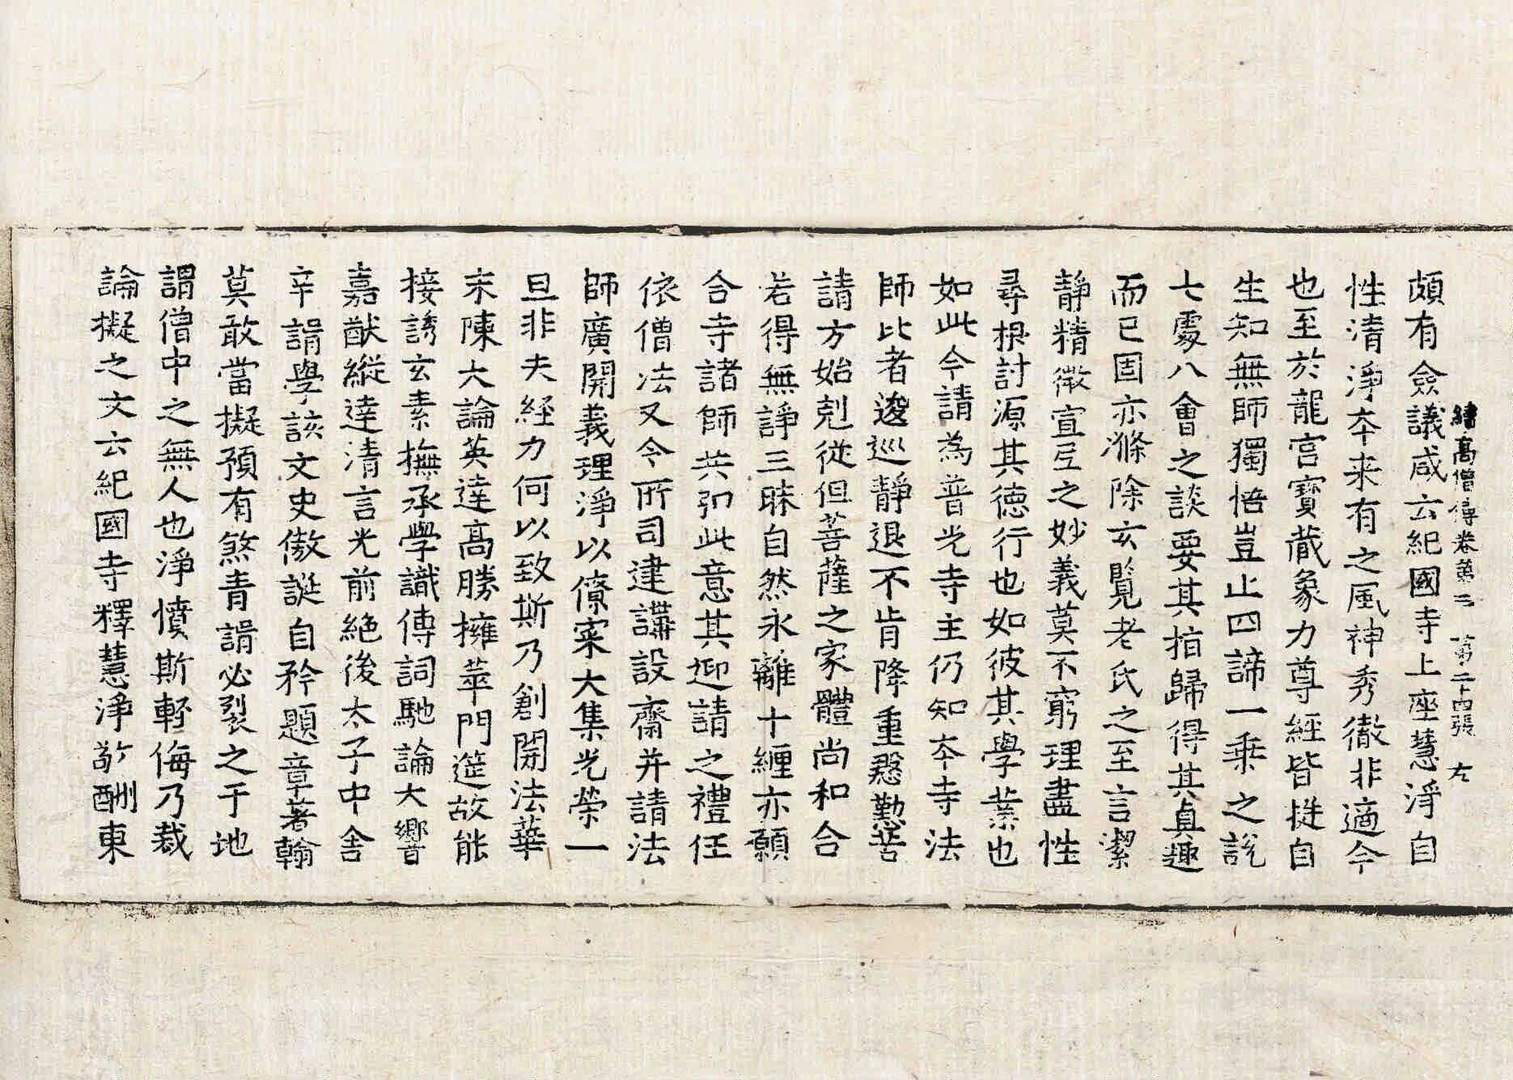 續高僧傳卷第三　第二十四張　左
頗有僉議咸云紀國寺上座慧淨自
性清淨夲来有之風神秀徹非適今
也至於龍宫寶蔵象力尊經皆挺自
生知無師獨悟豈止四諦一乗之說
七䖏八會之談要其指歸得其真趣
而已固亦滌除玄覧老氏之至言潔
静精微宣尼之妙義莫不窮理盡性
尋根討源其德行也如彼其學業也
如此今請為普光寺主仍知夲寺法
師比者逡巡静退不肯降重慇懃苦
請方始剋從但菩薩之家體尚和合
若得無諍三昧自然永離十纏亦願
合寺諸師共弘此意其迎請之禮任
依僧法又令所司建講設齋并請法
師廣開義理淨以僚寀大集光榮一
旦非夫經力何以致斯乃創開法華
末陳大論英達高勝擁萃門筵故能
接誘玄素撫承學識傳詞馳論大響
嘉猷縱達清言光前絶後太子中舍
辛諝學該文史傲誕自矜題章著翰
莫敢當擬預有煞青諝必裂之于地
謂僧中之無人也淨憤斯輕侮乃裁
論擬之文云紀國寺釋慧淨敬酬東